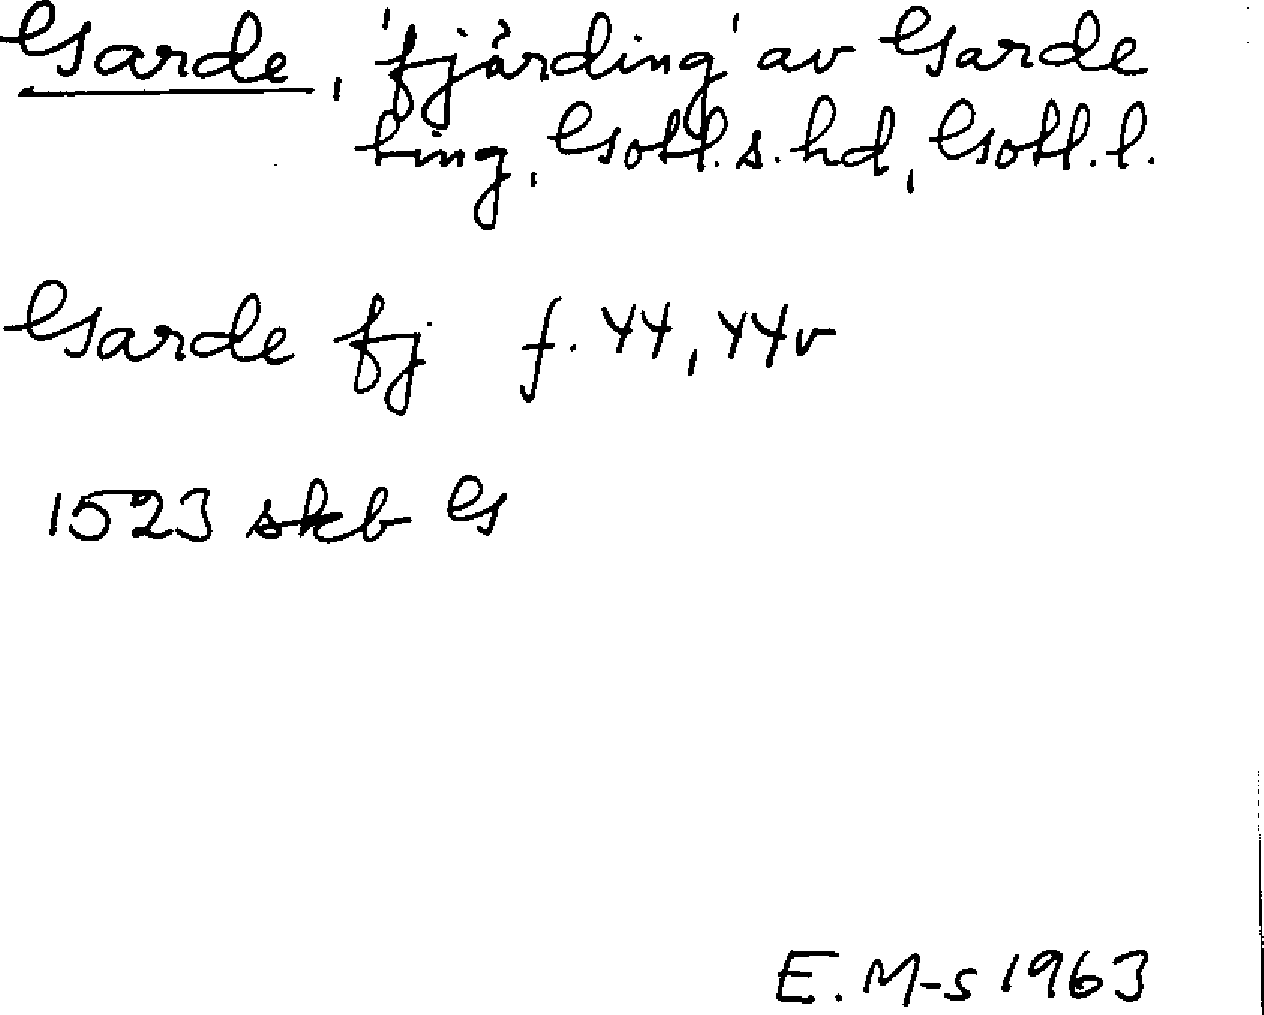 Garde, 'fjärding' av Garde
ting, Gotl. s. hd, Gotl. l.
Garde fj f. 44, 44v
1523 skb G
E. M-s 1963